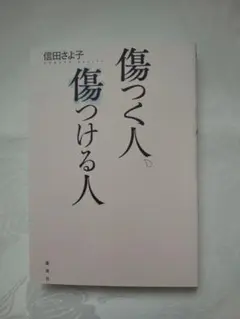 信田さよ子
傷つく人、
傷つける人